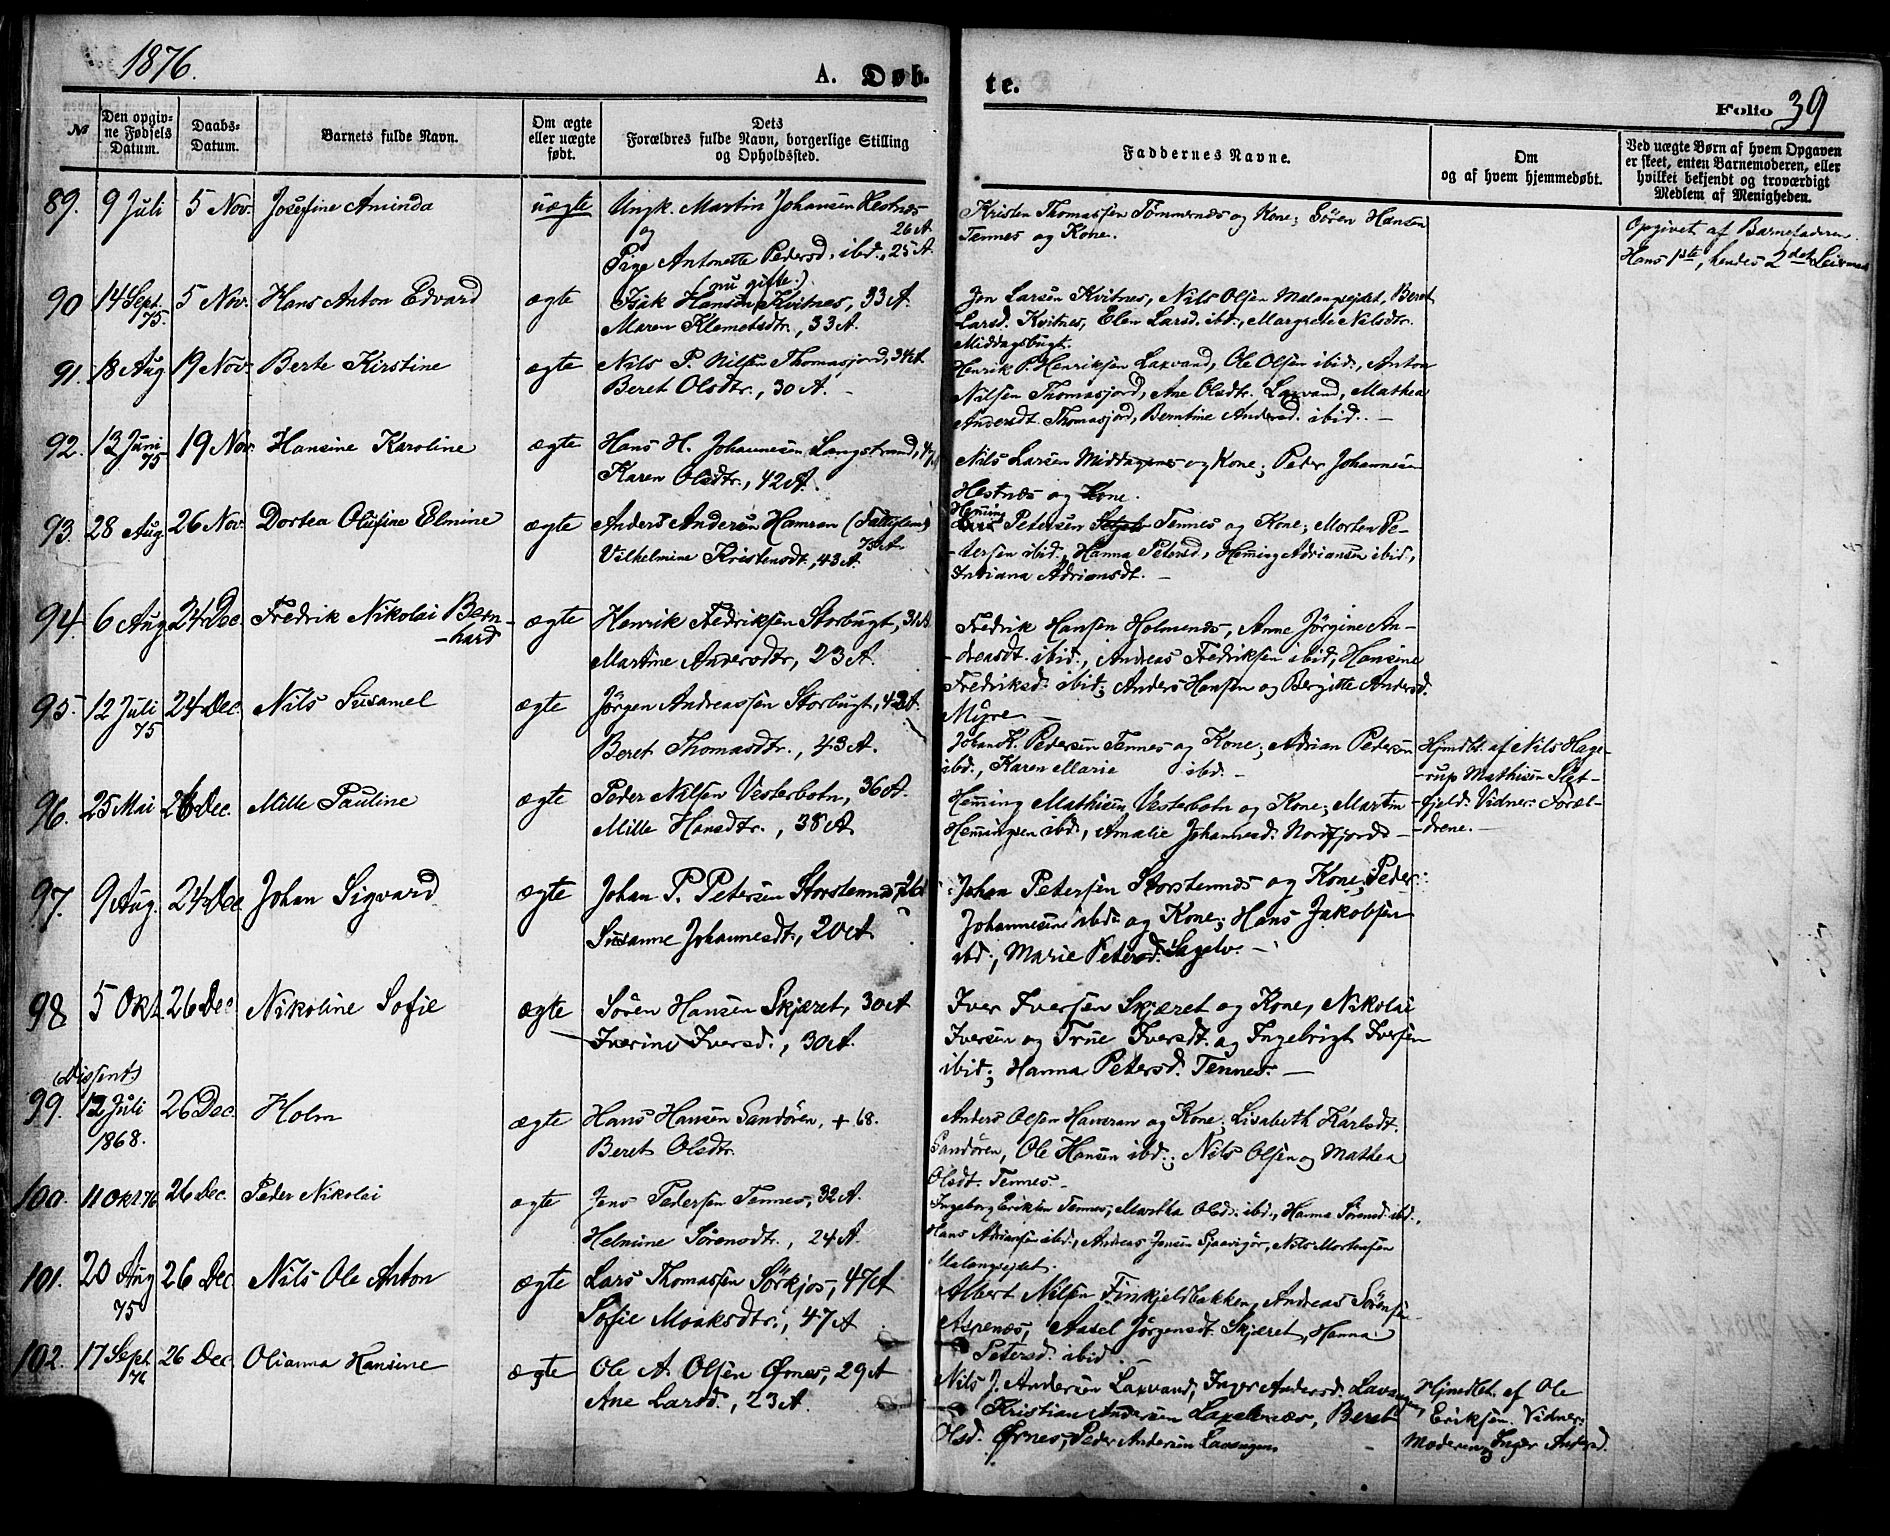 1876.
A. Døb-
te.
Folio 39
№
Den opgiv-
ne Fødsels
Datum.
Daabs-
Datum.
Barnets fulde Navn.
Om ægte
eller uægte
født.
Dets
Forældres fulde Navn, borgerlige Stilling
og Opholdssted.
Faddernes Navne.
Om
og af hvem hjemmedøbt.
Ved uægte Børn af hvem Opgaven
er skeet, enten Barnemoderen, eller
hvilket bekjendt og troværdigt
Medlem af Menigheden.
89. 9 Juli 5 Nov. Josefine Aminda uægte Ungk. Martin Johansen Hestnes
26 A.
og
Pige Antonette Pedersd. ibd., 25 A.
(nu gifte.)
Kristen Thomassen Tømmernes og Kone; Sören Hansen
Tennes og Kone.
Opgivet af Barnefaderen.
Hans 1ste, hendes 2det Leiermaal
90 14 Sept. 75. 5 Nov. Hans Anton Edvard ægte Isak Hansen Kvitnes, 33 A.
Maren Klemetsdtr., 33 A.
Jon Larsen Kvitnes, Nils Olsen Malangseidet, Beret
Larsd. Kvitnes, Elen Larsd. ibd., Margrete Nilsdtr.
Middagsbugt.
91. 18 Aug 19 Nov. Berte Kirstine ægte Nils P. Nilsen Thomasjord, 34 A.
Beret Olsdtr., 30 A.
Henrik P. Henriksen Laxvand, Ole Olsen ibid., Anton
Nilsen Thomasjord, Ane Olsdtr. Laxvand, Mathea
Andersdt. Thomasjord, Berntine Andersd. ibid. -
92. 13 Juni 75 19 Nov. Hansine Karoline ægte Hans H. Johannesen Langstrand, 47 A
Karen Olsdtr., 42 A.
Nils Larsen Middagsnes og Kone; Peder Johannesen
Hestnes og Kone.
93. 28 Aug 26 Nov. Dortea Olufine Elmine ægte Anders Andersen Hamran (Fattiglem)
75 A.
Vilhelmine Kristensdt., 43 A.
Heming
Petersen Tennes og Kone; Morten Pe-
-tersen ibid., Hanna Petersd., Heming Adriansen ibid.,
Indiana Adriansdt. -
94. 6 Aug. 24 Dec. Fredrik Nikolai Bern-
-hard ægte Henrik Fredriksen Storbugt, 31 A.
Martine Andersdtr., 23 A.
Fredrik Hansen Holmenes, Anne Jörgine An-
-dreasdt. ibid., Andreas Fredriksen ibid, Hansine
Fredriksd. ibid; Anders Hansen og Bergitte Andersd.
Myre -
95. 12 Juli 75 24 Dec. Nils Susamel ægte Jörgen Andreassen Storbugt, 42 A
Beret Thomasdtr., 43 A.
Johan K. Pedersen Tennes og Kone; Adrian Pedersen
ibd., Karen Marie ibd. -
Hjmdbt. af Nils Hage-
-rup Mathisen Slet-
-fjeld. Vidner: Foræl-
-drene. -
96. 25 Mai 26 Dec. Mille Pauline ægte Peder Nilsen Vesterbotn, 36 A.
Mille Hansdtr., 38 A.
Heming Mathisen Vesterbotn og Kone; Martin
Hemingsen ibd., Amalie Johannesd. Nordfjord -
97. 9 Aug. 24 Dec Johan Sigvard ægte Johan P. Petersen Storstennes,
Susanne Johannesdt., 20 A.
Johan Petersen Storstennes og Kone, Peder
Johannesen ibd. og Kone; Hans Jakobsen
ibd., Marie Petersd. Sagelv. -
98 5 Okt. 26 Dec Nikoline Sofie ægte Sören Hansen Skjæret, 30 A
Iverine Iversd., 30 A.
Iver Iversen Skjæret og Kone, Nikolai
Iversen og True Iversdt. og Ingebrigt Iversen
ibid; Hanna Petersd. Tennes. -
(Dissent)
99. 12 Juli 1868. 26 Dec. Holm ægte Hans Hansen Sandören, + 68.
Beret Olsdtr.
Anders Olsen Hamran og Kone; Lisabeth Karlsdt.
Sandören, Ole Hansen ibd.; Nils Olsen og Mathea
Olsdt. Tennes. -
100. 11 Okt 76 26 Dec. Peder Nikolai ægte Jens Pedersen Tennes, 32 A.
Helmine Sörensdtr., 24 A.
Ingeborg Eriksen Tennes, Martha Olsd. ibd., Hanna Sörensd. ibd.,
Hans Adriansen ibd., Andreas Jensen Sjaavigör, Nils Mortensen
Malangseidet.
101. 20 Aug 75 26 Dec Nils Ole Anton ægte Lars Thomassen Sörkjos, 47 A
Sofie Moaksdtr., 47 A
Albert Nilsen Finkjeldbakken, Andreas Sörensen
Aspenes, Aasel Jörgensdt. Skjæret, Hanna
Petersd. ibid
102. 17 Sept. 76 26 Dec. Olianna Hansine ægte Ole A. Olsen Ørnes, 29 A
Ane Larsd., 23 A.
Nils J. Andersen Laxvand, Inger Andersd. Lavangen,
Kristian Andersen Laxelvnes, Beret
Olsd. Ørnes, Peder Andersen Lavangen
Hjmdbt. af Ole
Eriksen. Vidner:
Moderen og Inger Andersd.